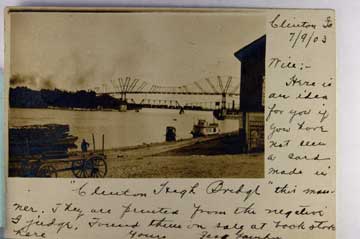 Clinton Ia
7/9/03
Will:-
Here is
an idea
for you if
you have
not seen
a card
made in
"Clinton High Bridge" this man-
ner. They are printed from the negative
I judge. Found them on sale at book store
here. Yours